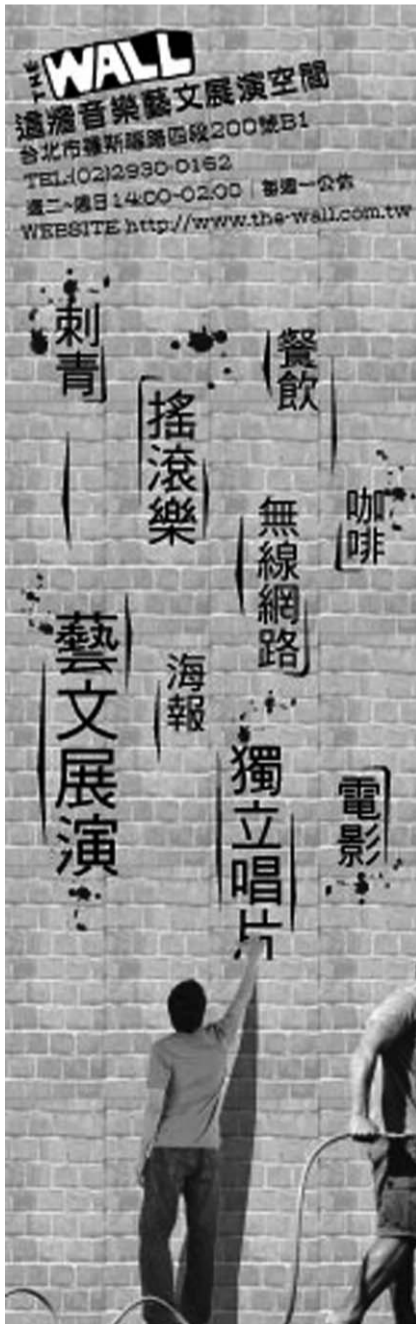 THE WALL
這牆音樂藝文展演空間
台北市羅斯福路四段200號B1
TEL:(02)2930-0162
週二~週日14:00-02:00 | 每週一公休
WEBSITE http://www.the-wall.com.tw
刺青
餐飲
搖滾樂
咖啡
無線網路
藝文展演
海報
獨立唱片
電影